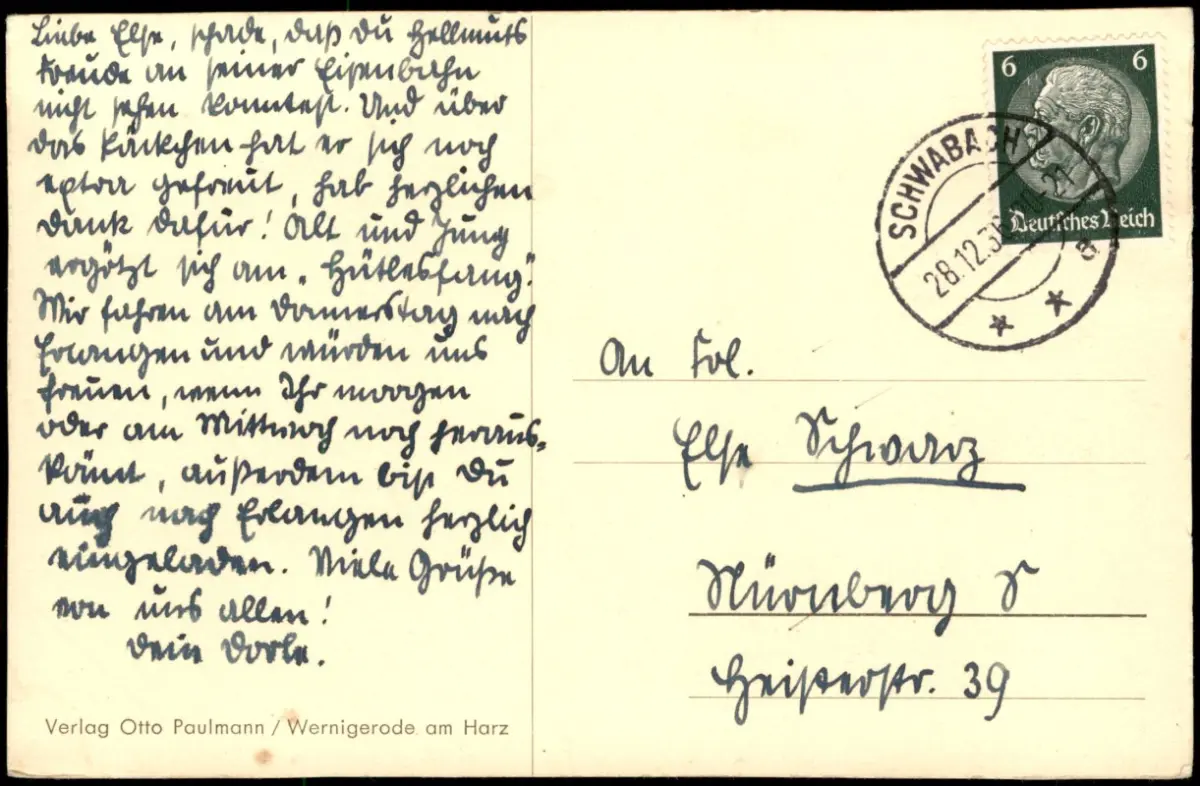 Liebe Else, schade, daß Du Hellmuts
Freude an seiner Eisenbahn
nicht sehen konntest. Und über
das Päckchen hat er sich noch
extra gefreut, hab herzlichen
Dank dafür! Alt und Jung
ergötzt sich am „Hütlesfang“.
Wir fahren am Donnerstag nach
Erlangen und würden uns
freuen, wenn Ihr morgen
oder am Mittwoch noch heraus-
könnt, außerdem bist Du
auch nach Erlangen herzlich
eingeladen. Viele Grüße
von uns allen!
Dein Dorle.
Verlag Otto Paulmann / Wernigerode am Harz
6 6
Deutsches Reich
SCHWABACH
28.12.36
An Frl.
Else Schwarz
Nürnberg S
Heisterstr. 39